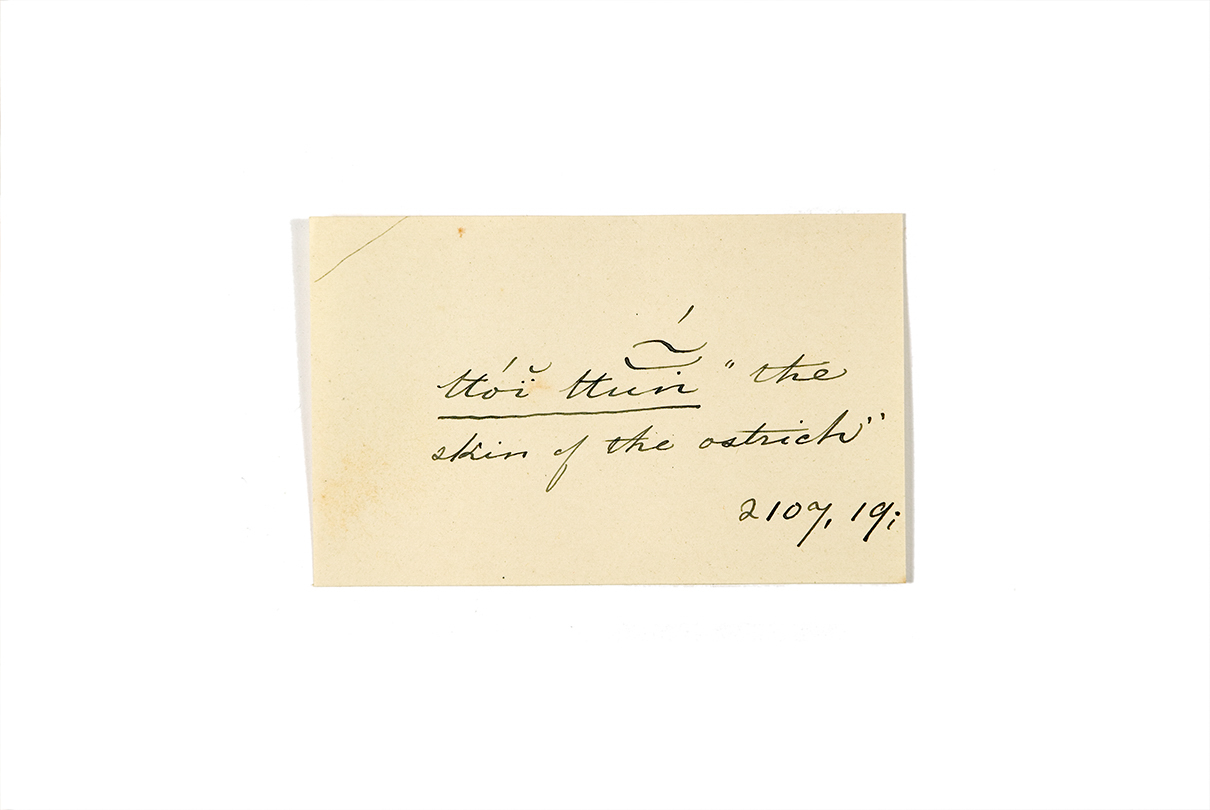 ttóĭ̈ ttŭ̃́ṅ "the
skin of the ostrich"
2107, 19;